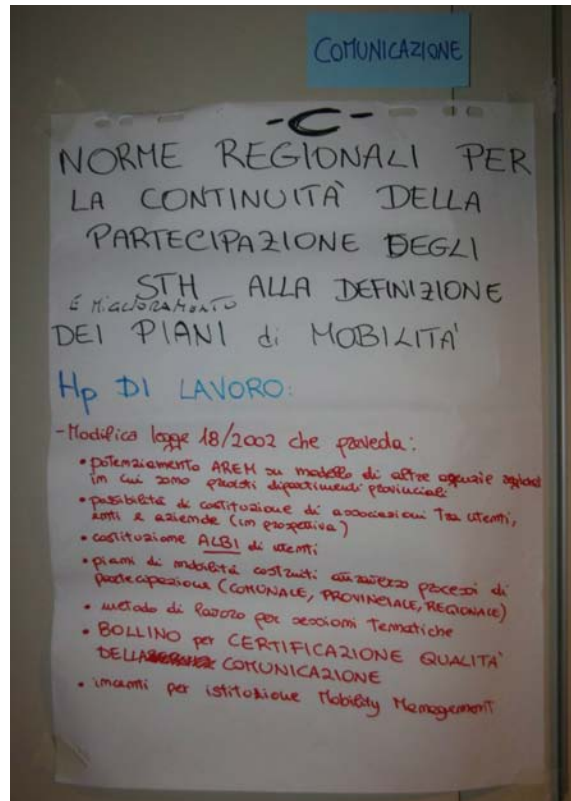 COMUNICAZIONE
-C-
NORME REGIONALI PER
LA CONTINUITÀ DELLA
PARTECIPAZIONE DEGLI
STH ALLA DEFINIZIONE
E MIGLIORAMENTO
DEI PIANI di MOBILITÀ
Hp DI LAVORO:
- Modifica legge 18/2002 che preveda:
• potenziamento AREM su modello di altre agenzie regionali
in cui sono previsti dipartimenti provinciali
• possibilità di costituzione di associazioni tra utenti,
enti e aziende (in prospettiva)
• costituzione ALBI di utenti
• piani di mobilità costruiti attraverso processi di
partecipazione (COMUNALE, PROVINCIALE, REGIONALE)
• metodo di lavoro per sessioni tematiche
• BOLLINO per CERTIFICAZIONE QUALITÀ
DELLA COMUNICAZIONE
• incenti per istituzione Mobility Management